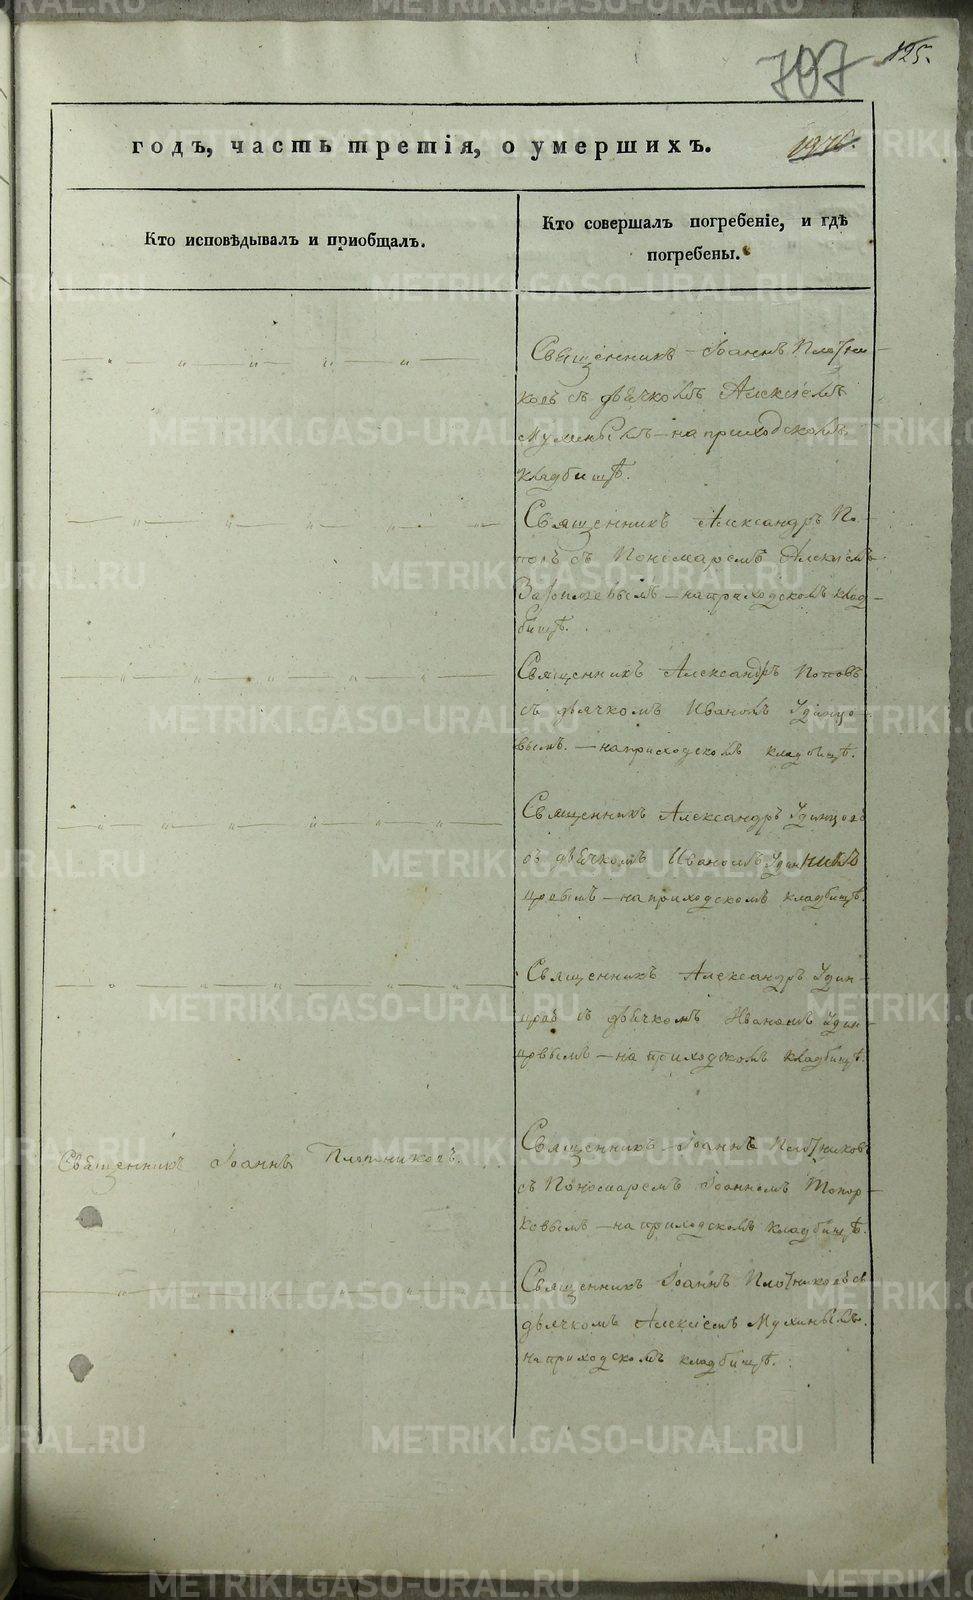 707
125.
годъ, часть третія, о умершихъ.
Кто исповѣдывалъ и пріобщалъ.
Кто совершалъ погребеніе, и гдѣ
погребены.
Священникъ Іоаннъ Плотни-
ковъ съ дьячкомъ Алексіемъ
Мухинымъ – на приходскомъ
кладбищѣ.
Священникъ Александръ По-
повъ съ Пономаремъ Алексіемъ
– на приходскомъ клад-
бищѣ.
Священникъ Александръ Поповъ
съ дьячкомъ Иваномъ Удинцо-
вымъ. – на приходскомъ кладбищѣ.
Священникъ Александръ Удинцовъ
съ дьячкомъ Иваномъ Удин
цовымъ – на приходскомъ кладбищѣ.
Священникъ Александръ Удин-
цовъ съ дьячкомъ Иваномъ Удин-
цовымъ – на приходскомъ кладбищѣ.
Священникъ Іоаннъ Плотниковъ.
Священникъ Іоаннъ Плотниковъ
съ Пономаремъ Іоанномъ Топор-
ковымъ – на приходскомъ кладбищѣ.
Священникъ Іоаннъ Плотниковъ съ
дьячкомъ Алексіемъ Мухинымъ.
на приходскомъ кладбищѣ.
METRIKI.GASO-URAL.RU